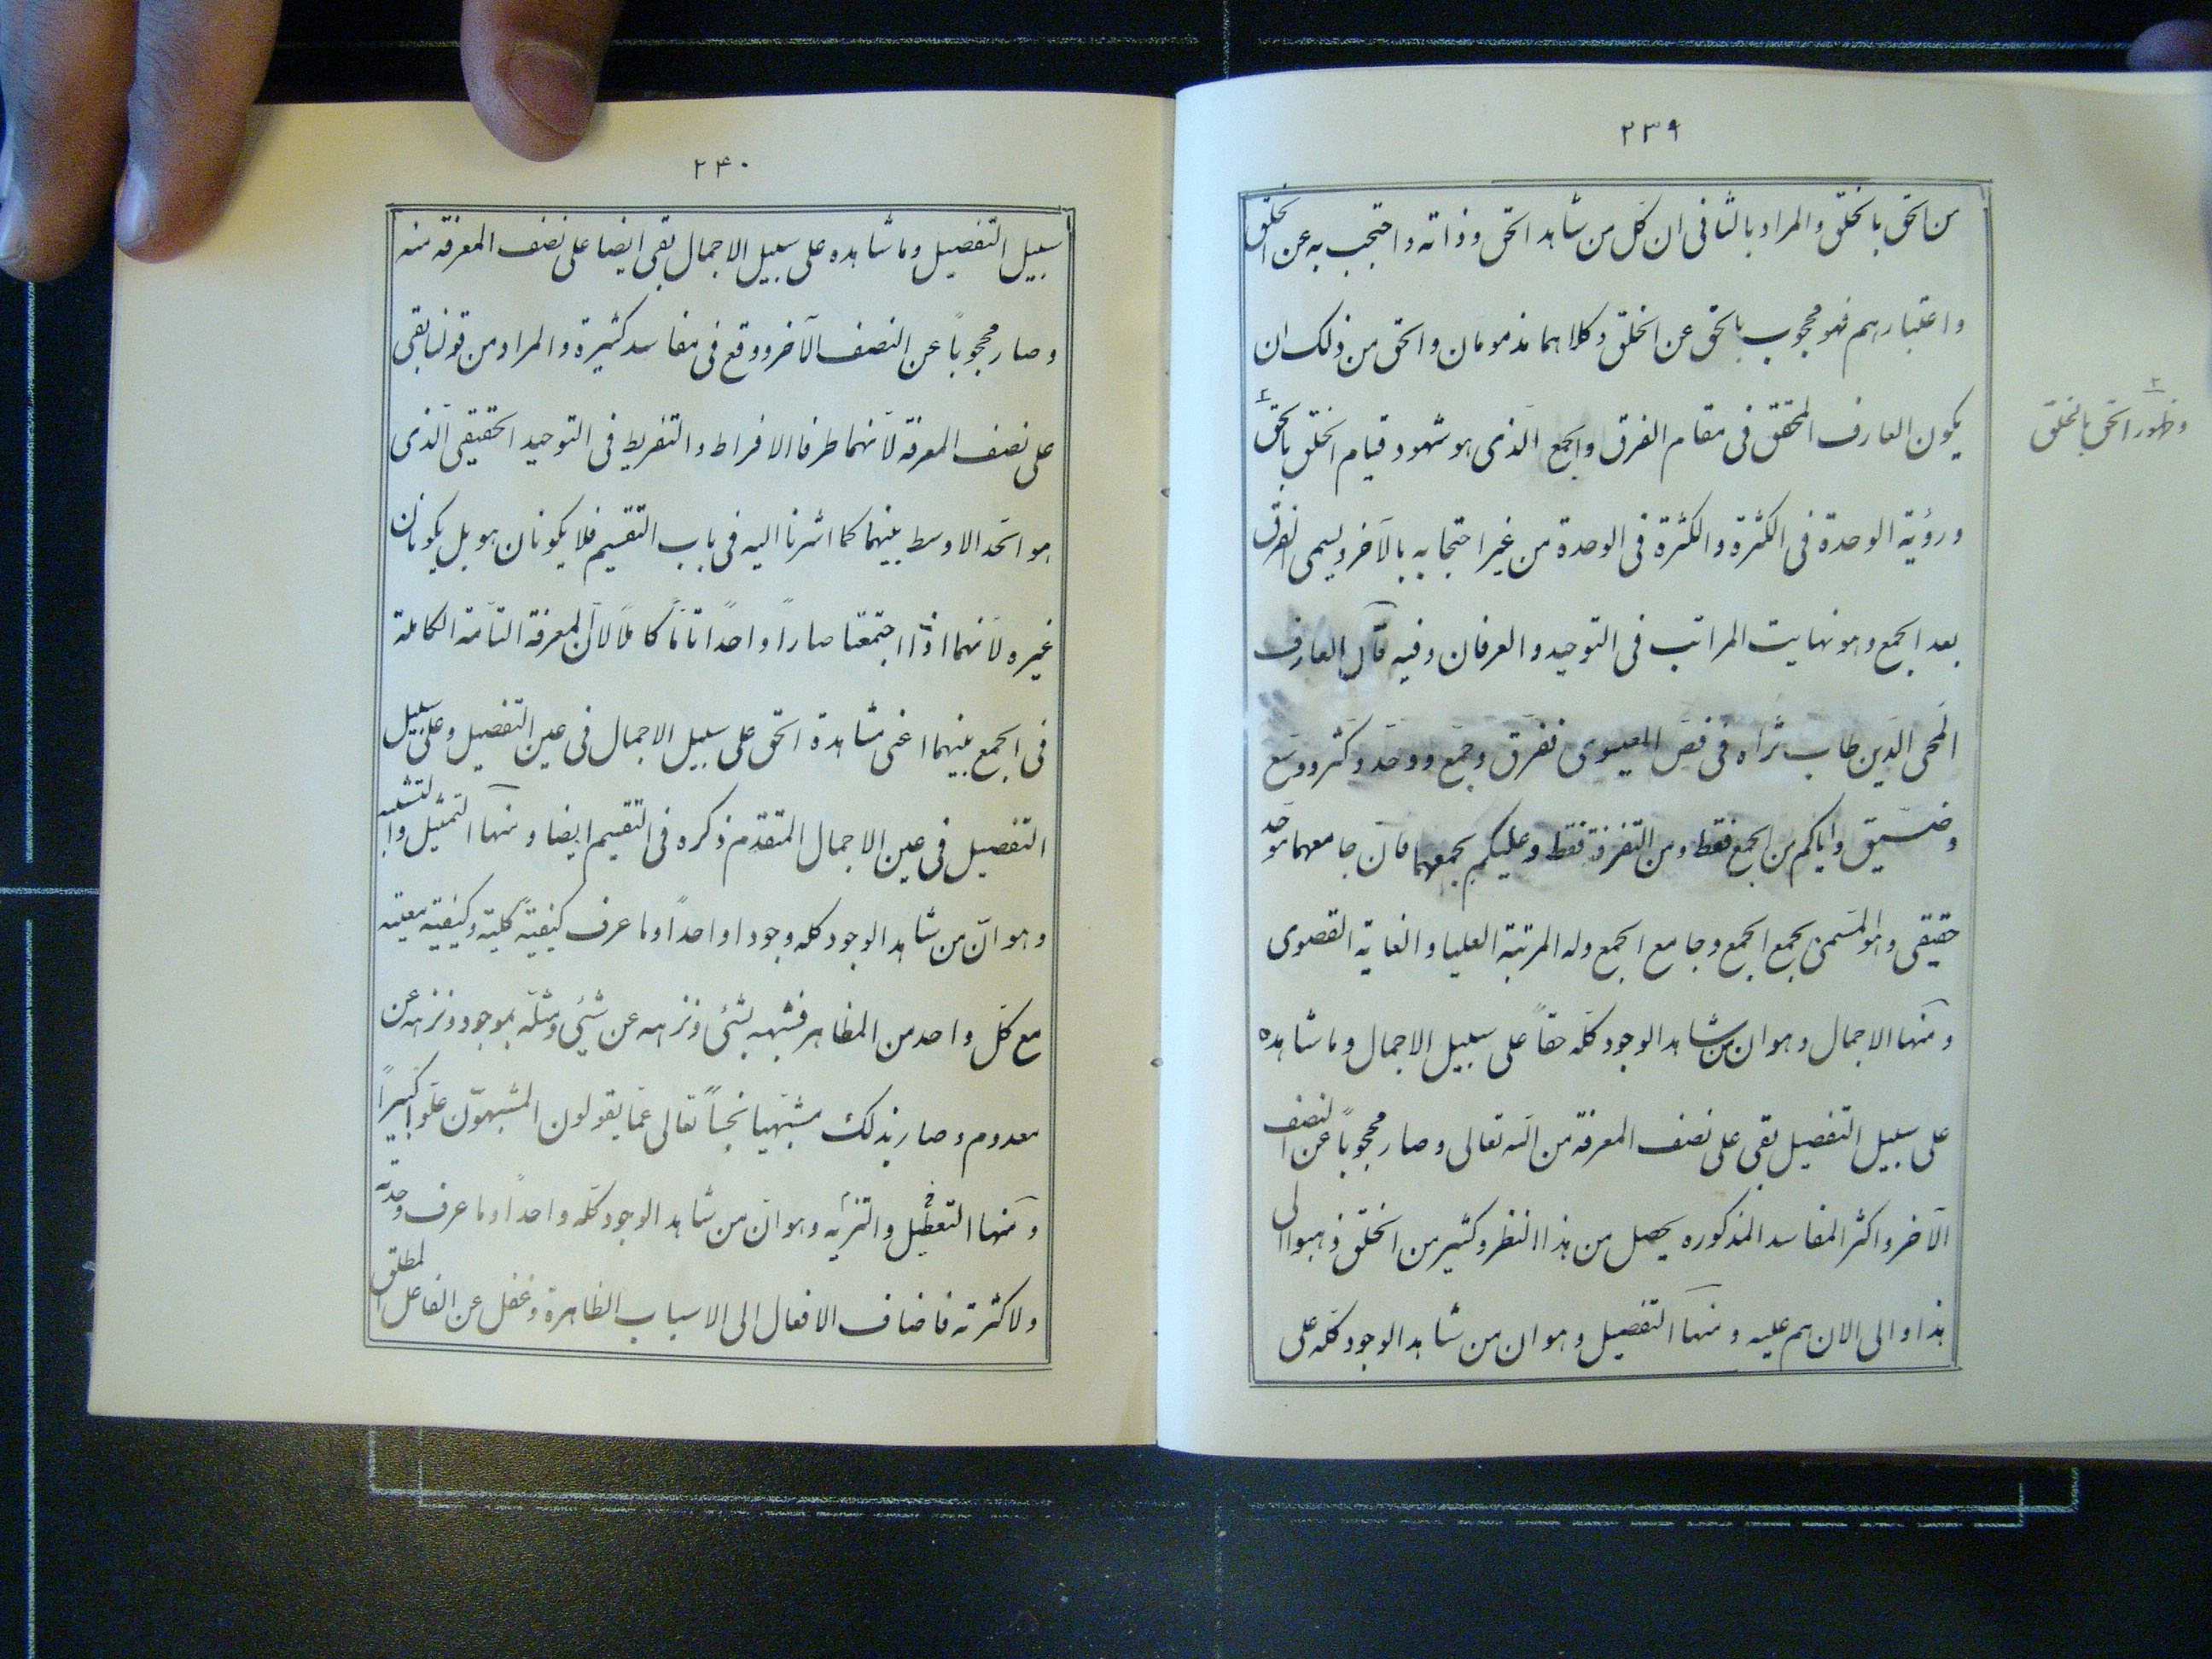 ٢٣٩
من الحق بالخلق والمراد بالثانى ان كل من شاهد الحق وذاته واحتجب به عن الخلق
واعتبارهم فهو محجوب بالحق عن الخلق وكلاهما مذمومان والحق من ذلك ان
يكون العارف المحقق فى مقام الفرق والجمع الذى هو شهود قيام الخلق بالحق
وظهور الحق بالخلق
ورؤية الوحدة فى الكثرة والكثرة فى الوحدة من غير احتجابه بالآخر ويسمى الفرق
بعد الجمع وهو نهايت المراتب فى التوحيد والعرفان وفيه قال العارف
المحى الدين طاب ثراه فى فص العيسوى ففرق وجمع ووحد وكثر ووسع
وضيق واياكم من الجمع فقط ومن التفرقة فقط وعليكم بجمعهما فان جامعهما موحد
حقيقى وهو المسمى بجمع الجمع وجامع الجمع وله المرتبة العليا والغاية القصوى
ومنها الاجمال وهو ان من شاهد الوجود كله حقاً على سبيل الاجمال وما شاهده
على سبيل التفصيل بقى على نصف المعرفة من الله تعالى وصار محجوباً عن النصف
الآخر واكثر المفاسد المذكوره يحصل من هذا النظر وكثير من الخلق ذهبوا الى
هذا والى الان هم عليه ومنها التفصيل وهو ان من شاهد الوجود كله على
٢۴٠
سبيل التفصيل وما شاهده على سبيل الاجمال بقى ايضا على نصف المعرفة منه
وصار محجوباً عن النصف الآخر ووقع فى مفاسد كثيرة والمراد من قولنا بقى
على نصف المعرفة لأنهما طرفا الافراط والتفريط فى التوحيد الحقيقى الذى
هو الحد الاوسط بينهما كما اشرنا اليه فى باب التقسيم فلا يكونان هو بل يكونان
غيره لأنهما اذا اجتمعتا صاراً واحداً تاماً كاملاً لان المعرفة التامة الكاملة
فى الجمع بينهما اعنى مشاهدة الحق على سبيل الاجمال فى عين التفصيل وعلى سبيل
التفصيل فى عين الاجمال المتقدم ذكره فى التقسيم ايضا ومنها التمثيل والتشبيه
وهو ان من شاهد الوجود كله وجودا واحداً وما عرف كيفيةً كلية وكيفية معيته
مع كل واحد من المظاهر فشبهه بشئى ونزهه عن شئى ومثله بموجود ونزهه عن
معدوم وصار بذلك مشبهيا نجساً تعالى عما يقولون المشبهون علواً كبيراً
ومنها التعطيل والتنزيه وهو ان من شاهد الوجود كله واحداً وما عرف وحدته
ولا كثرته فاضاف الافعال الى الاسباب الظاهرة وغفل عن الفاعل المطلق